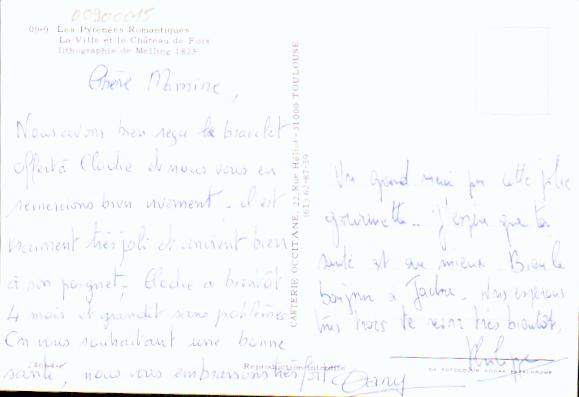 00900015
09-9 Les Pyrénées Romantiques
La Ville et le Château de Foix
lithographie de Melling 1825
Chère Mamine,
Nous avons bien reçu le bracelet
offert à Elodie et nous vous en
remercions bien vivement. il est
vraiment très joli et convient bien
à son poignet, Elodie a bientôt
4 mois et grandit sans problèmes
En vous souhaitant une bonne
santé, nous vous embrassons très fort
CARTERIE OCCITANE, 22, Rue Héliot - 31000 TOULOUSE
(61) 62-87-39
Un grand merci pour cette jolie
gourmette. J'espère que ta
santé est au mieux. Bien le
bonjour à Nous espérons
tous trois te revoir très bientôt.
Philippe
Reproduction interdite